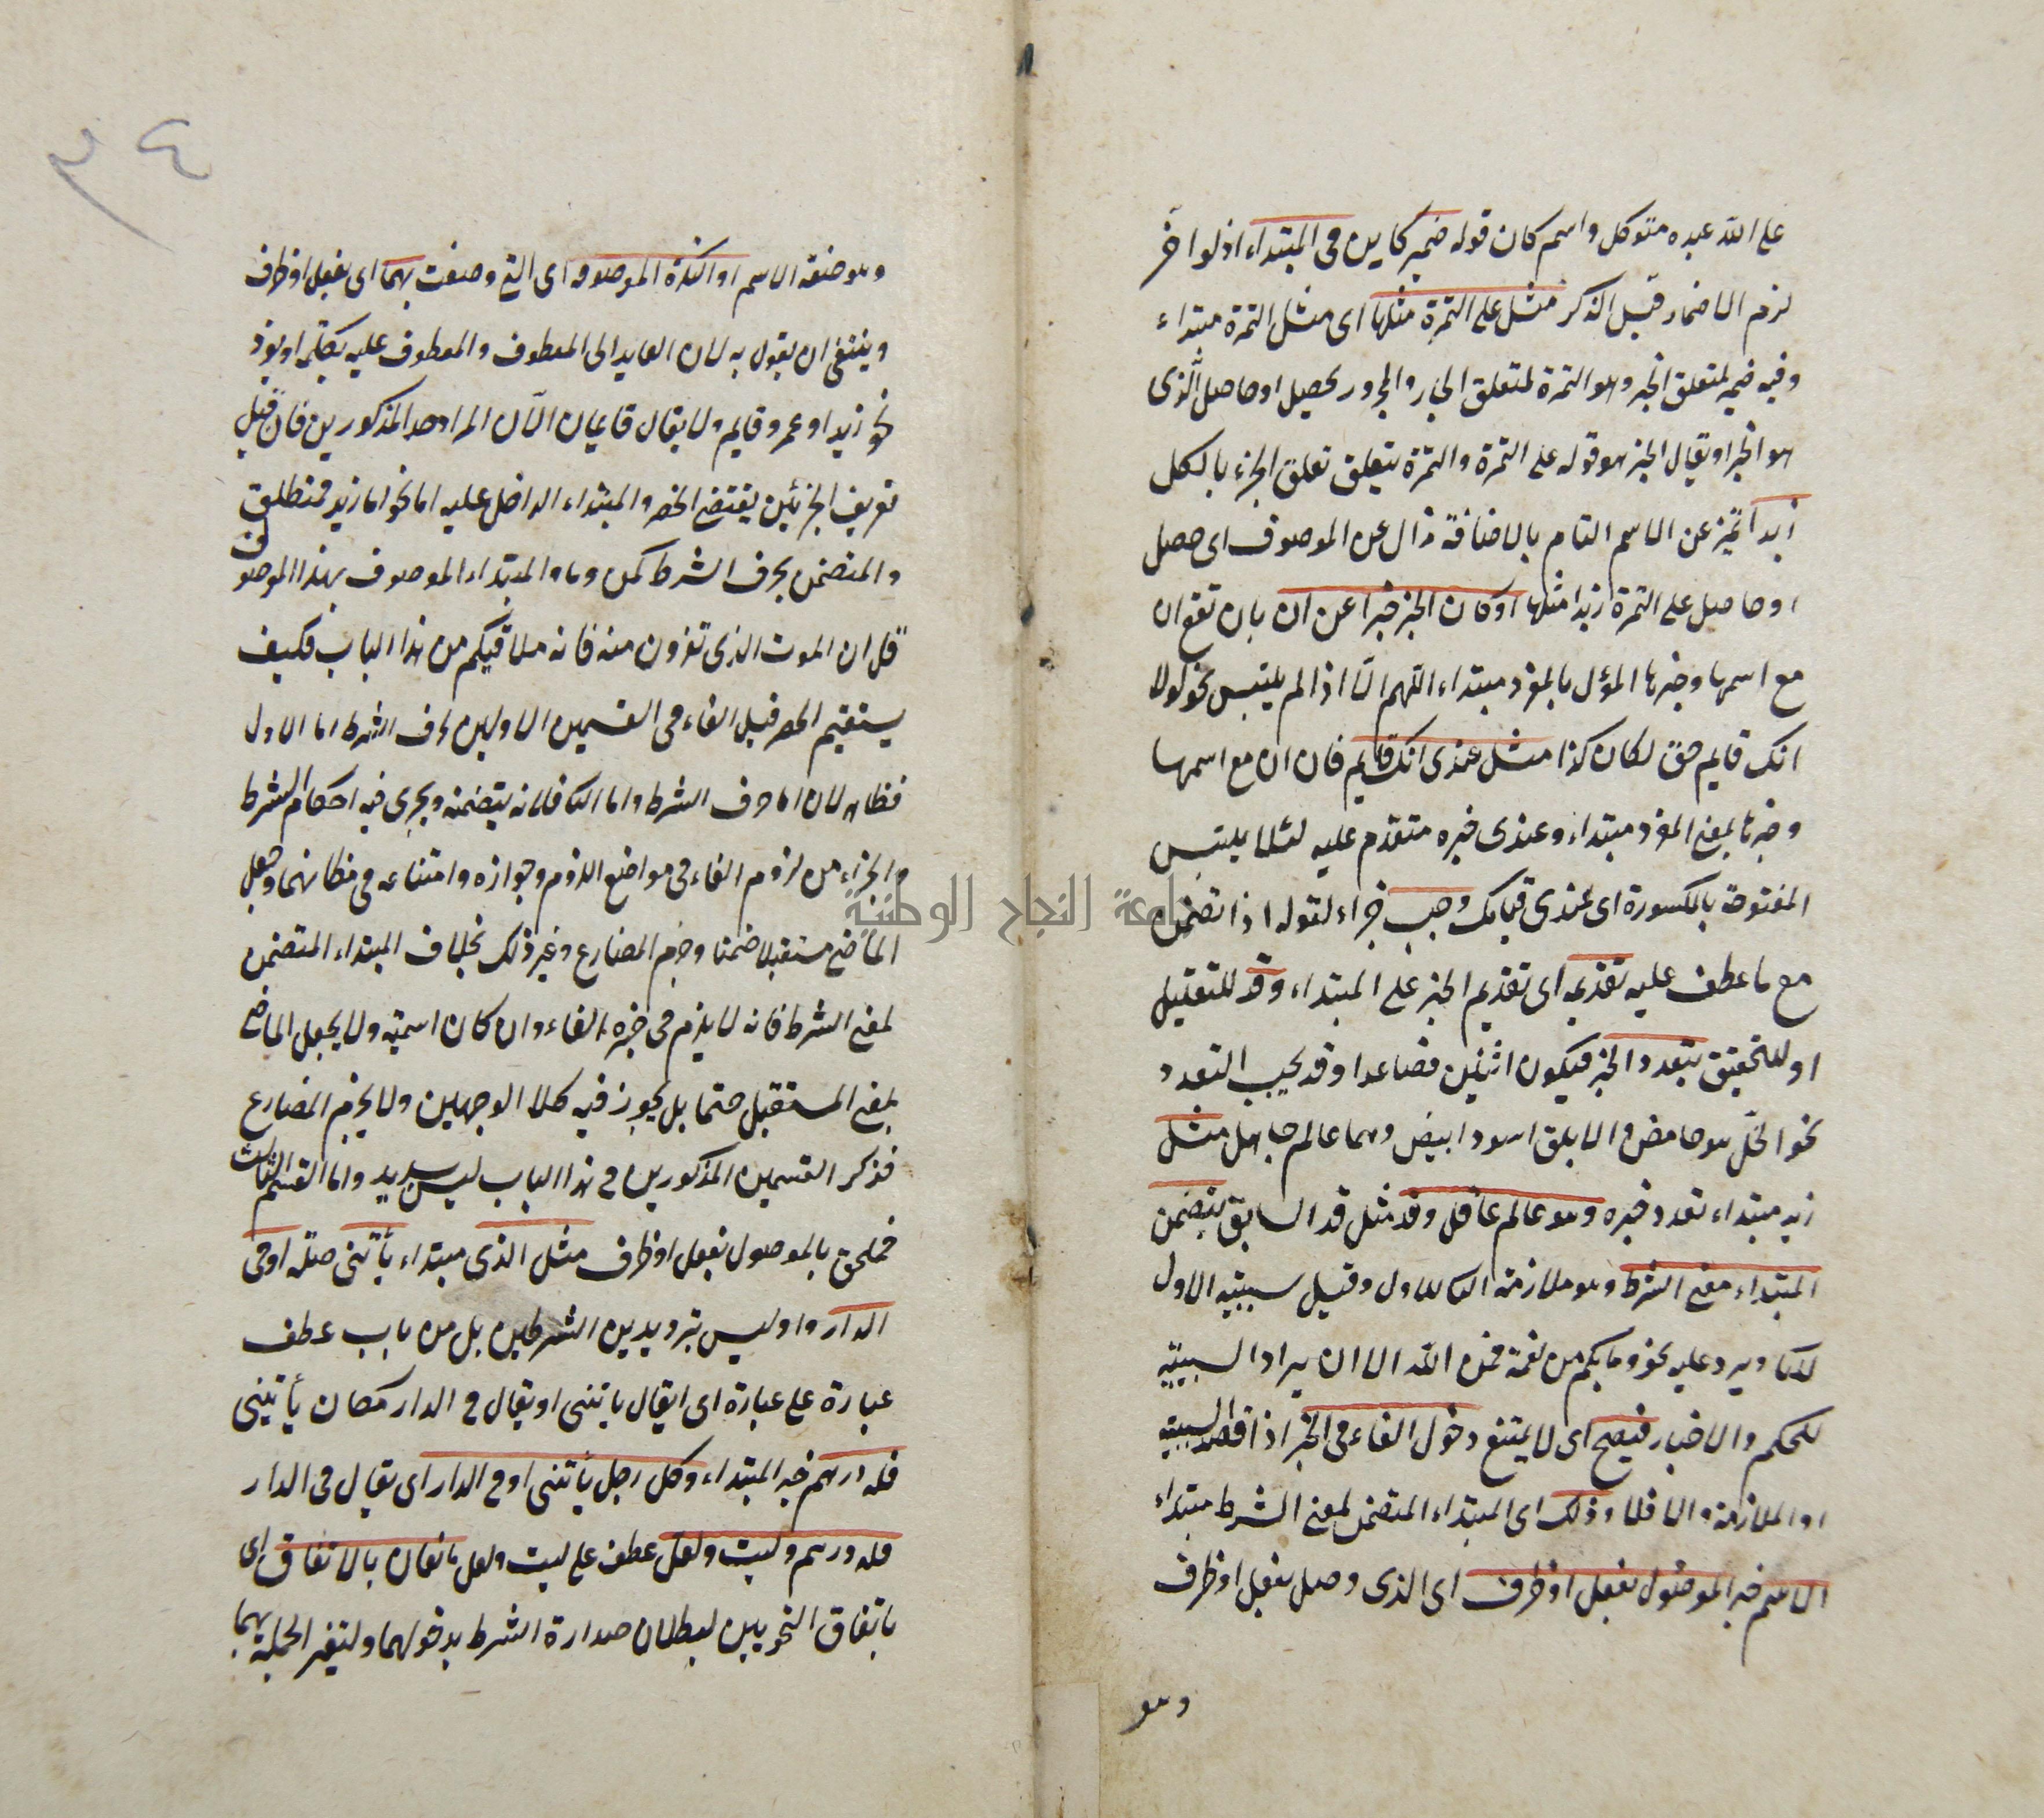 على الله عبده متوكل واسم كان قوله ضمير كاين فى المبتداء اذ لو اخر
لزم الاضمار قبل الذكر مثل على التمرة مثلها اى مثل التمرة مبتداء
وفيه ضمير لمتعلق الخبر وهو التمرة لمتعلق الجار والمجرور يحصل او حاصل الذى
هو الخبر او يقال الخبر هو قوله على التمرة والتمرة يتعلق تعلق الجزء بالكل
زبدا تميز عن الاسم التام بالاضافة اى حصل
او حاصل على التمرة زبدا مثلها او كان الخبر خبرا عن ان بان تقع ان
مع اسمها وخبرها المؤل بالمفرد مبتداء اللهم الا اذا لم يلتبس نحو لولا
انك قايم حق لكان كذا مثل عندى انك قايم فان ان مع اسمها
وخبرها بمعنى المفرد مبتداء وعندى خبره متقدم عليه لئلا يلتبس
المفتوحة بالمكسورة اى عندى قيامك وجب جزاء لقوله اذا تضمن
مع ما عطف عليه تقديمه اى تقديم الخبر على المبتداء وقد للتقليل
او للتحقيق يتعدد الخبر فيكون اثنين فصاعدا وقد يجب التعدد
نحو الخل هو حامض والابلق اسود ابيض وهما عالم جاهل مثل
زيد مبتداء تعدد خبره وهو عالم عاقل وقد مثل قد السابق يتضمن
المبتداء معنى الشرط وهو ملازمة الثانى للاول وقيل سببية الاول
للثانى ويرد عليه نحو وما بكم من نعمة فمن الله الا ان يراد السببية
للحكم والاخبار فيصح اى لا يمتنع دخول الفاء فى الخبر اذا قصد السببية
او الملازمة والا فلا وذلك اى المبتداء المتضمن لمعنى الشرط مبتداء
الاسم خبر الموصول بفعل او ظرف اى الذى وصل بفعل او ظرف
وهو
٣٤
وهو صفة الاسم او النكرة الموصوفة اى التى وصفت بهما اى بفعل او ظرف
وينبغى ان يقول به لان العايد الى المعطوف والمعطوف عليه بكلمة او يفرد
نحو زيد او عمرو قايم ولا يقال قايمان الا ان المراد احد المذكورين فان قيل
تعريف الجزئين يقتضى الحصر والمبتداء الداخل عليه اما نحو اما زيد فمنطلق
والمتضمن بحرف الشرط كمن وما والمبتداء الموصوف بهذا الموصوف
قل ان الموت الذى تفرون منه فانه ملاقيكم من هذا الباب فكيف
يستقيم الحصر قيل الفاء فى القسمين الاولين لحرف الشرط اما الاول
فظاهر لان اما حرف الشرط واما الثانى فلانه يتضمنه ويجرى فيه احكام الشرط
والجزاء من لزوم الفاء فى مواضع اللزوم وجوازه وامتناعه فى مظانهما وجعل
الماضى مستقبلا ضمنا وجزم المضارع وغير ذلك بخلاف المبتداء المتضمن
لمعنى الشرط فانه لا يلزم فى خبره الفاء وان كان اسمية ولا يجعل الماضى
بمعنى المستقبل حتما بل يجوز فيه كلا الوجهين ولا يجزم المضارع
فذكر القسمين المذكورين فى هذا الباب ليس بسديد واما القسم الثالث
فملحق بالموصول بفعل او ظرف مثل الذى مبتداء يأتينى صلة او فى
الدار واو ليس بترديد بين الشرطين بل من باب عطف
عبارة على عبارة اى ايقال ياتينى او يقال فى الدار مكان يأتينى
فله درهم خبر المبتداء وكل رجل يأتينى او فى الدار اى يقال فى الدار
فله درهم وليت ولعل عطف على ليت ولعل مانعان بالاتفاق اى
باتفاق النحويين لبطلان صدارة الشرط بدخولهما ولتغير الجملة بهما
جامعة النجاح الوطنية